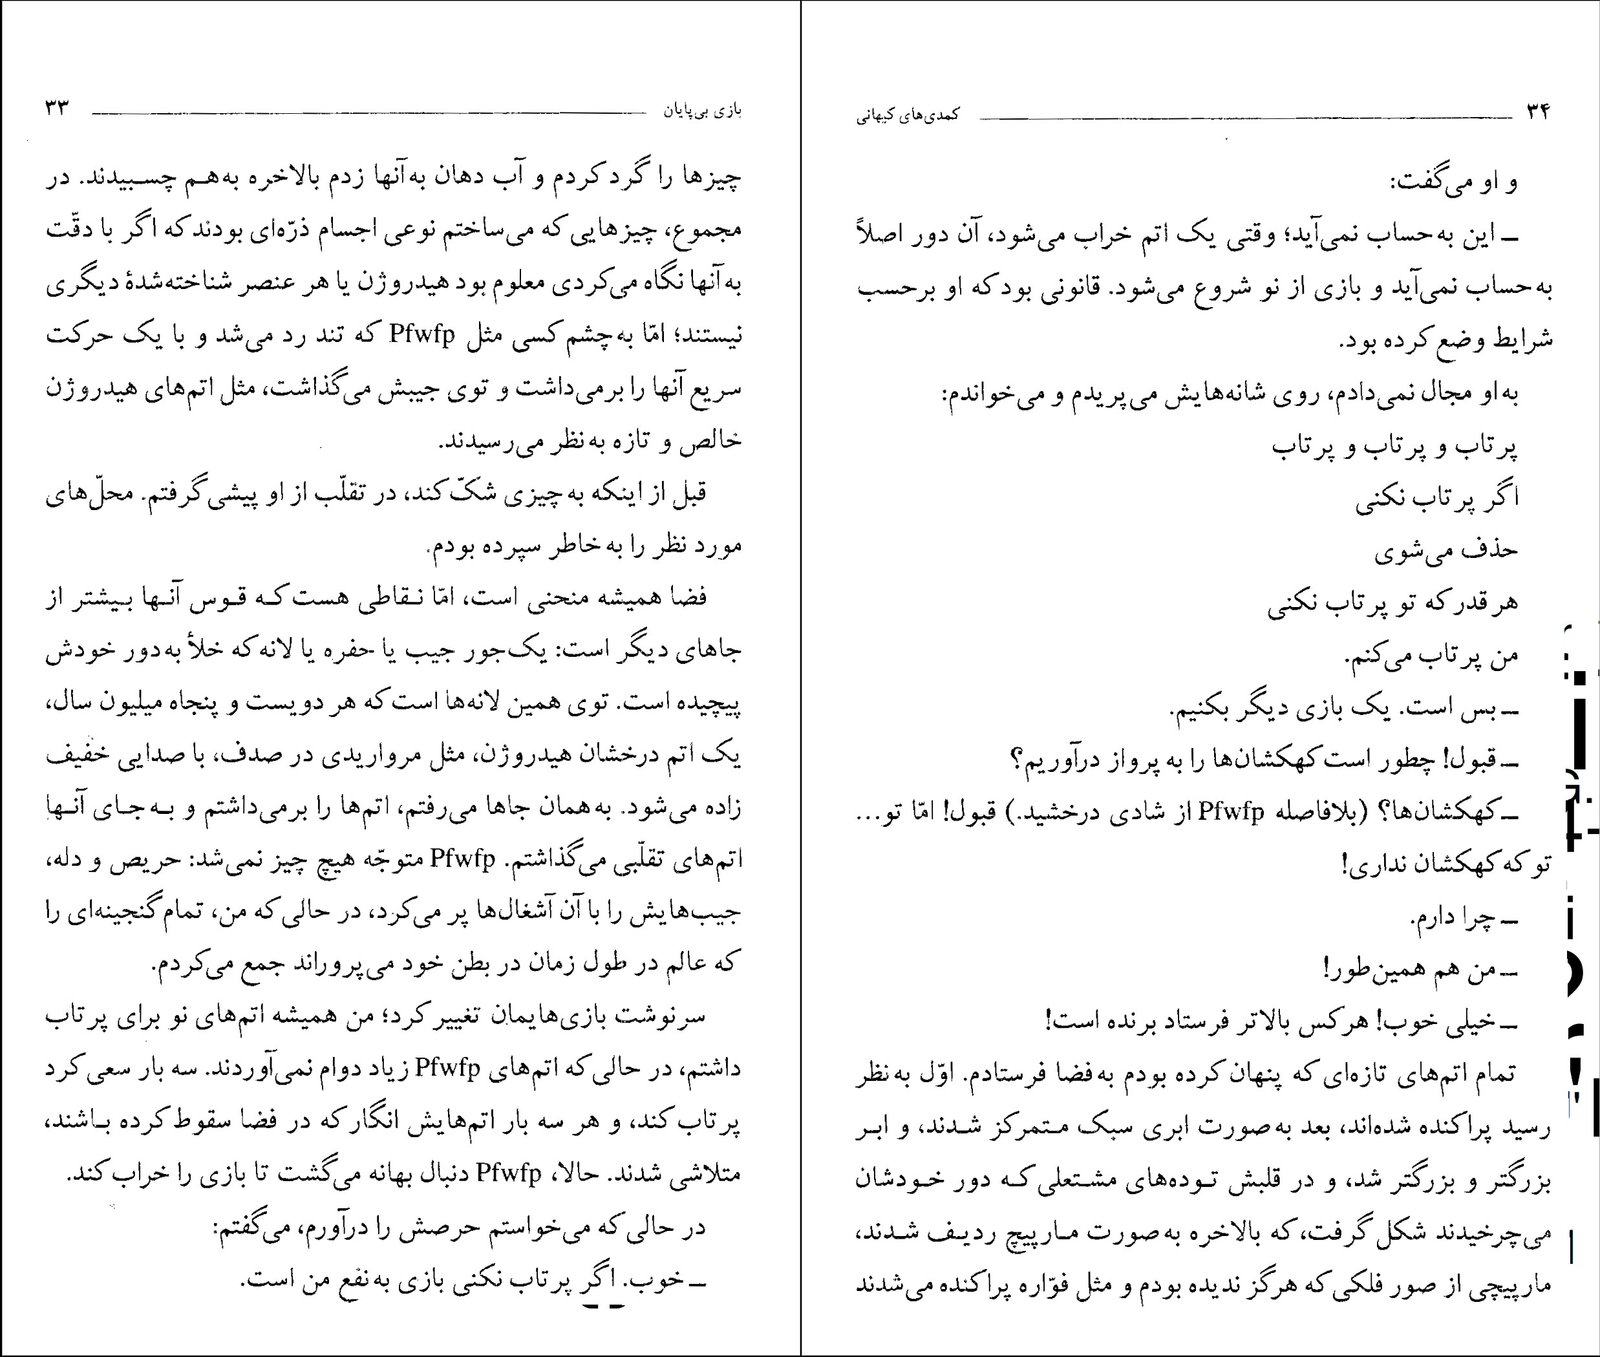 بازی بی‌پایان ۳۳
چیزها را گرد کردم و آب دهان به‌آنها زدم بالاخره به‌هم چسبیدند. در
مجموع، چیزهایی که می‌ساختم نوعی اجسام ذرّه‌ای بودند که اگر با دقّت
به‌آنها نگاه می‌کردی معلوم بود هیدروژن یا هر عنصر شناخته‌شدهٔ دیگری
نیستند؛ امّا به‌چشم کسی مثل Pfwfp که تند رد می‌شد و با یک حرکت
سریع آنها را برمی‌داشت و توی جیبش می‌گذاشت، مثل اتم‌های هیدروژن
خالص و تازه به‌نظر می‌رسیدند.
قبل از اینکه به‌چیزی شکّ کند، در تقلّب از او پیشی گرفتم. محلّ‌های
مورد نظر را به‌خاطر سپرده بودم.
فضا همیشه منحنی است، امّا نقاطی هست که قوس آنها بیشتر از
جاهای دیگر است: یک‌جور جیب یا حفره یا لانه که خلأ به‌دور خودش
پیچیده است. توی همین لانه‌ها است که هر دویست و پنجاه میلیون سال،
یک اتم درخشان هیدروژن، مثل مرواریدی در صدف، با صدایی خفیف
زاده می‌شود. به‌همان جاها می‌رفتم، اتم‌ها را برمی‌داشتم و به‌جای آنها
اتم‌های تقلّبی می‌گذاشتم. Pfwfp متوجّه هیچ چیز نمی‌شد: حریص و دله،
جیب‌هایش را با آن آشغال‌ها پر می‌کرد، در حالی که من، تمام گنجینه‌ای را
که عالم در طول زمان در بطن خود می‌پروراند جمع می‌کردم.
سرنوشت بازی‌هایمان تغییر کرد؛ من همیشه اتم‌های نو برای پرتاب
داشتم، در حالی که اتم‌های Pfwfp زیاد دوام نمی‌آوردند. سه بار سعی کرد
پرتاب کند، و هر سه بار اتم‌هایش انگار که در فضا سقوط کرده باشند،
متلاشی شدند. حالا، Pfwfp دنبال بهانه می‌گشت تا بازی را خراب کند.
در حالی که می‌خواستم حرصش را درآورم، می‌گفتم:
ــ خوب. اگر پرتاب نکنی بازی به‌نفع من است.
۳۴ کمدی‌های کیهانی
و او می‌گفت:
ــ این به‌حساب نمی‌آید؛ وقتی یک اتم خراب می‌شود، آن دور اصلاً
به‌حساب نمی‌آید و بازی از نو شروع می‌شود. قانونی بود که او برحسب
شرایط وضع کرده بود.
به‌او مجال نمی‌دادم، روی شانه‌هایش می‌پریدم و می‌خواندم:
پرتاب و پرتاب و پرتاب
اگر پرتاب نکنی
حذف می‌شوی
هر قدر که تو پرتاب نکنی
من پرتاب می‌کنم.
ــ بس است. یک بازی دیگر بکنیم.
ــ قبول! چطور است کهکشان‌ها را به پرواز درآوریم؟
ــ کهکشان‌ها؟ (بلافاصله Pfwfp از شادی درخشید.) قبول! امّا تو...
تو که کهکشان نداری!
ــ چرا دارم.
ــ من هم همین‌طور!
ــ خیلی خوب! هرکس بالاتر فرستاد برنده است!
تمام اتم‌های تازه‌ای که پنهان کرده بودم به‌فضا فرستادم. اوّل به‌نظر
رسید پراکنده شده‌اند، بعد به‌صورت ابری سبک متمرکز شدند، و ابر
بزرگتر و بزرگتر شد، و در قلبش توده‌های مشتعلی که دور خودشان
می‌چرخیدند شکل گرفت، که بالاخره به‌صورت مارپیچ ردیف شدند،
مارپیچی از صور فلکی که هرگز ندیده بودم و مثل فوّاره پراکنده می‌شدند